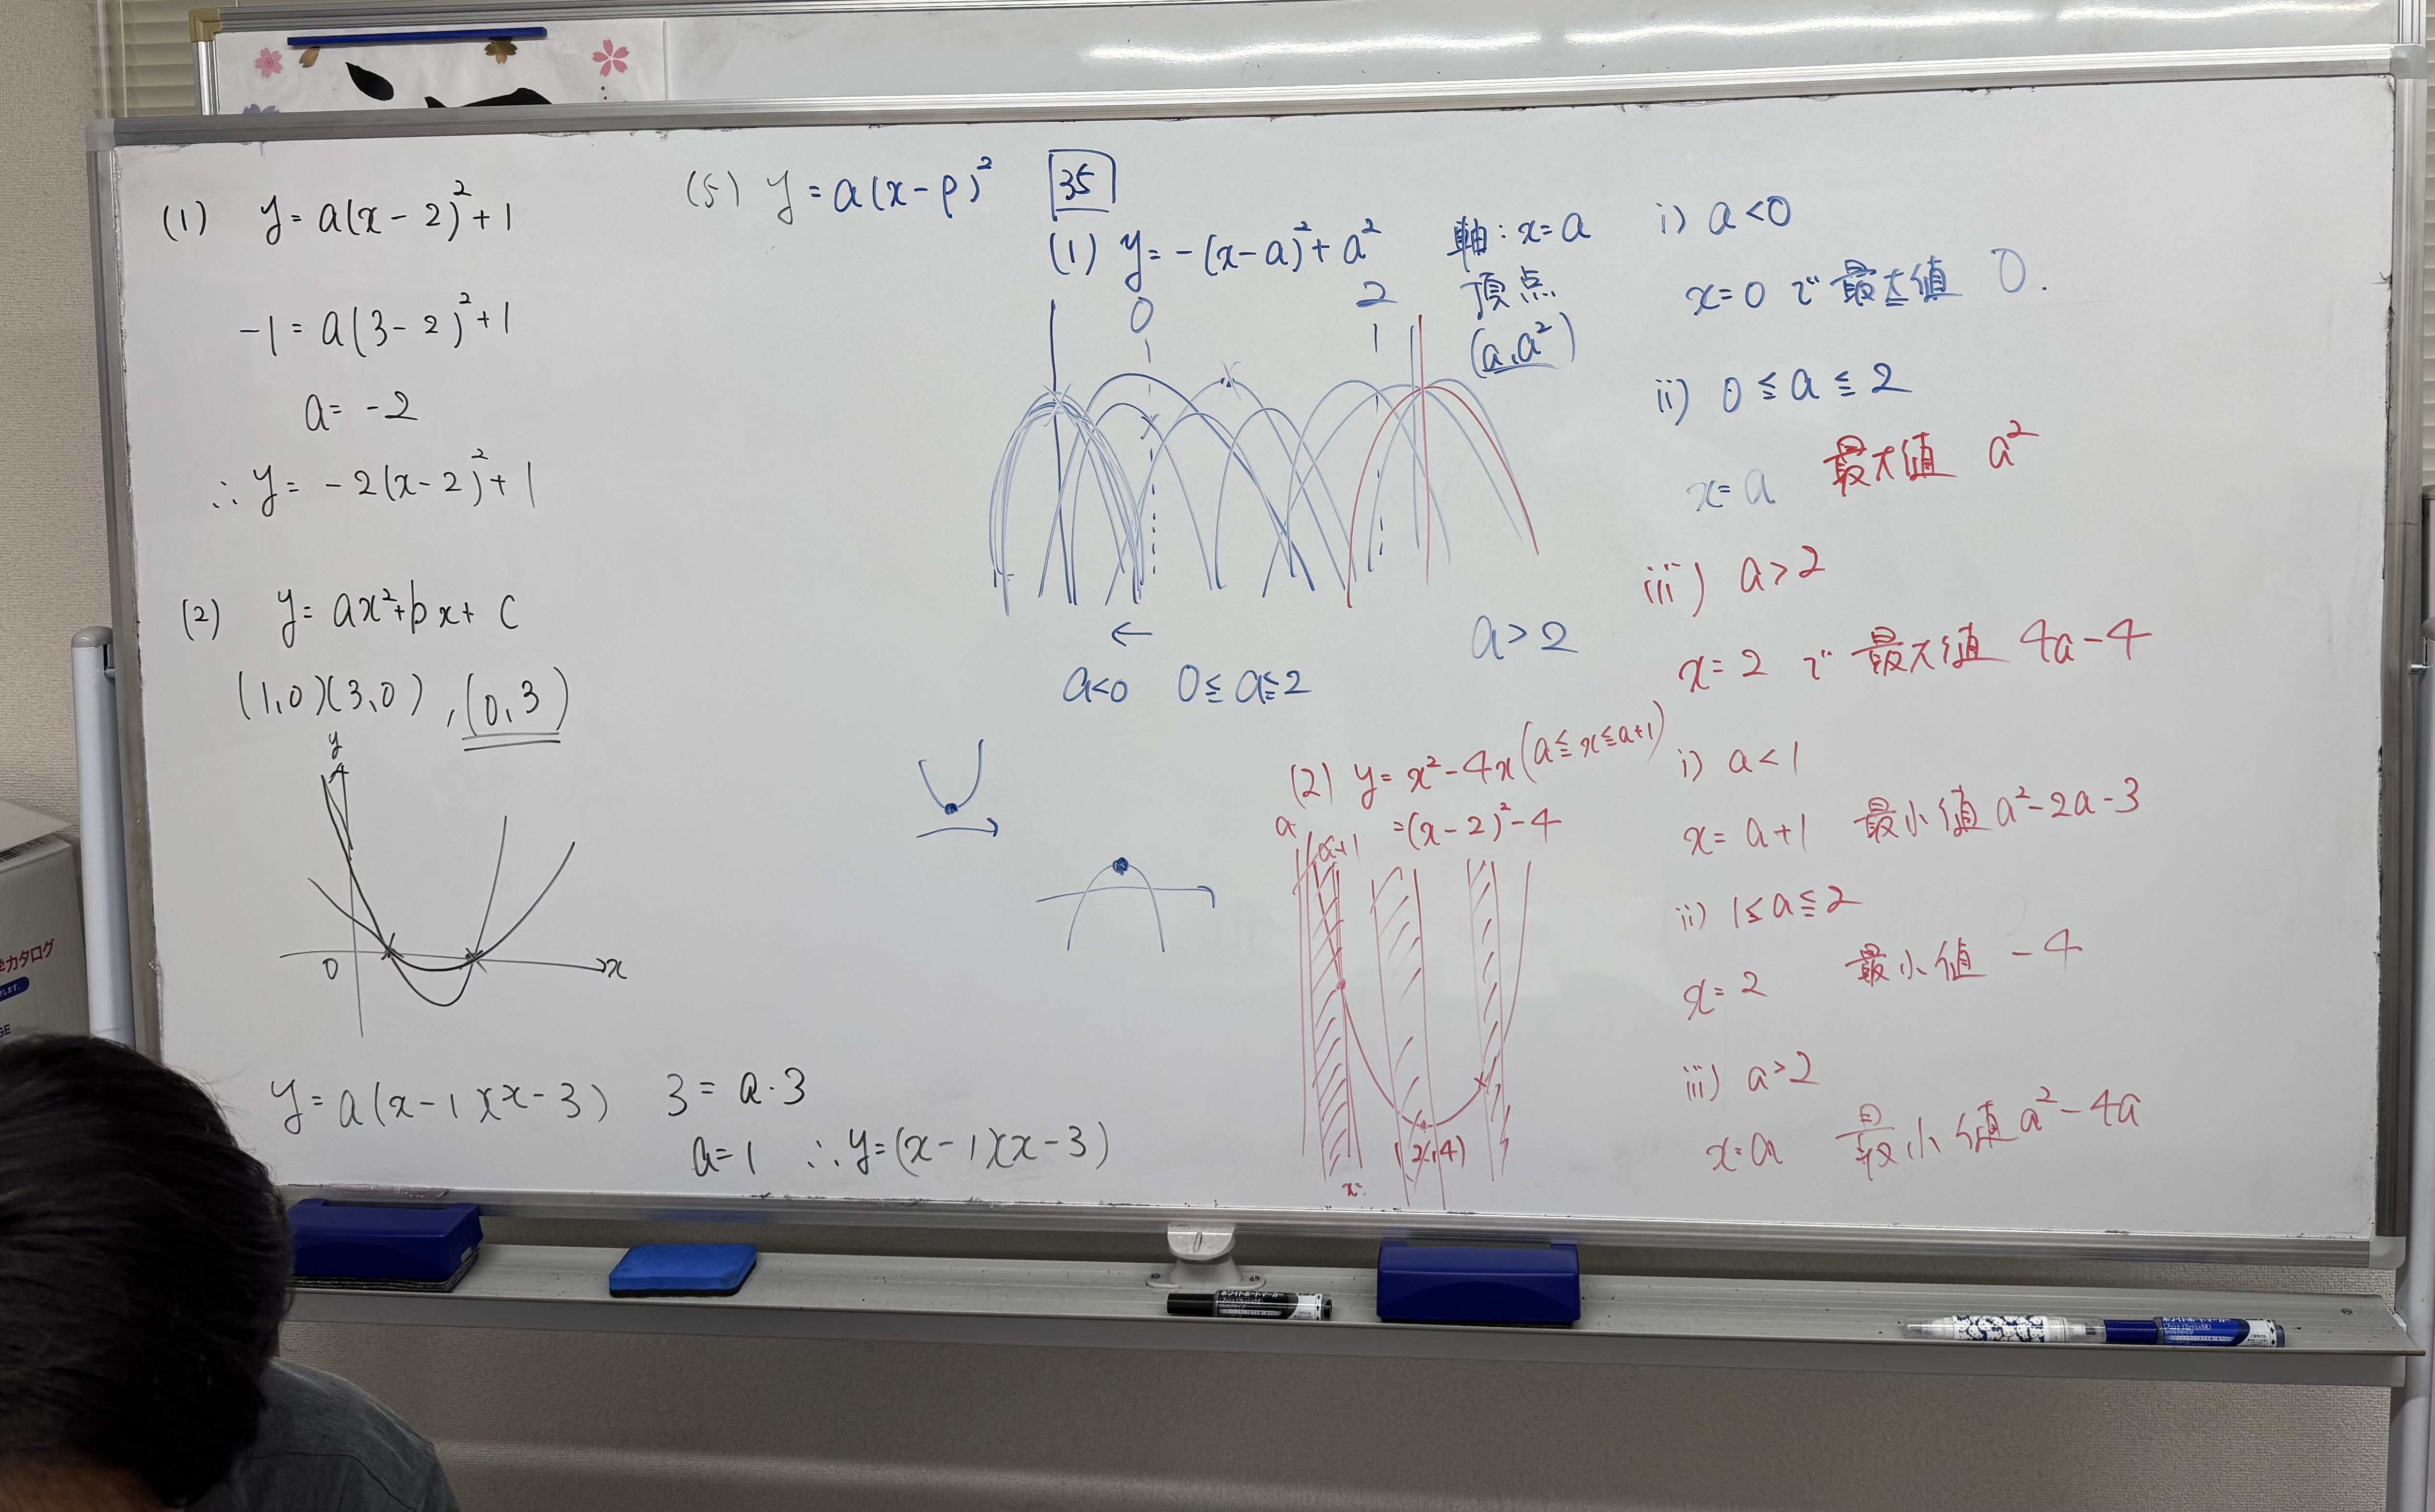 (1) y=a(x-2)²+1
-1=a(3-2)²+1
a=-2
∴y=-2(x-2)²+1
(2) y=ax²+bx+c
(1,0)(3,0),(0,3)
y
0
x
y=a(x-1)(x-3)
3=a・3
a=1 ∴y=(x-1)(x-3)
(5) y=a(x-p)²
35
(1) y=-(x-a)²+a²
軸:x=a
頂点
(a,a²)
0
2
←
a<0 0≦a≦2
a>2
i) a<0
x=0で最大値 0.
ii) 0≦a≦2
x=a 最大値 a²
iii) a>2
x=2で最大値 4a-4
(2) y=x²-4x(a≦x≦a+1)
=(x-2)²-4
a
a+1
x=
i) a<1
x=a+1 最小値 a²-2a-3
ii) 1≦a≦2
x=2 最小値 -4
iii) a>2
x=a 最小値 a²-4a
カタログ